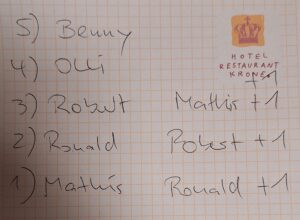 5) Benny
HOTEL
RESTAURANT
KRONE
4) Olli
+1
3) Robert Mathis +1
2) Ronald Robert +1
1) Mathis Ronald +1